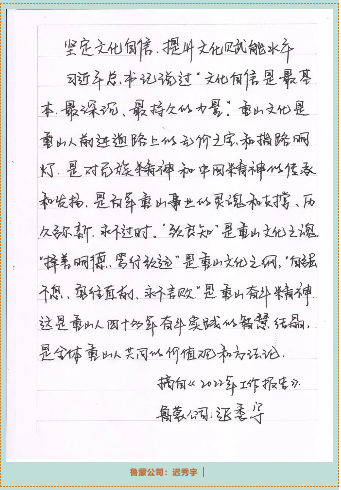 坚定文化自信，提升文化赋能水平
习近平总书记说过"文化自信是最基
本、最深沉、最持久的力量"。重山文化是
重山人前进道路上的无价之宝和指路明
灯，是对民族精神和中国精神的传承
和发扬，是百年重山事业的灵魂和支撑、历
久弥新、永不过时。"致良知"是重山文化之魂
"择善明德、笃行致远"是重山文化之纲，"自强
不息、勇往直前、永不言败"是重山奋斗精神.
这是重山人四十多年奋斗实践的智慧结晶，
是全体重山人共同的价值观和方法论.
摘自《2022年工作报告》.
鲁蒙公司：迟秀宇
鲁蒙公司：迟秀宇